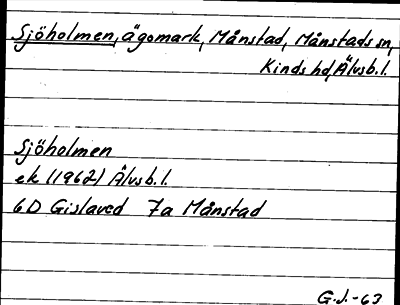 Sjöholmen, ägomark, Månstad, Månstads sn,
Kinds hd, Älvsb.l.
Sjöholmen
ek (1962) Älvsb.l.
6D Gislaved 7a Månstad
G.J.-63